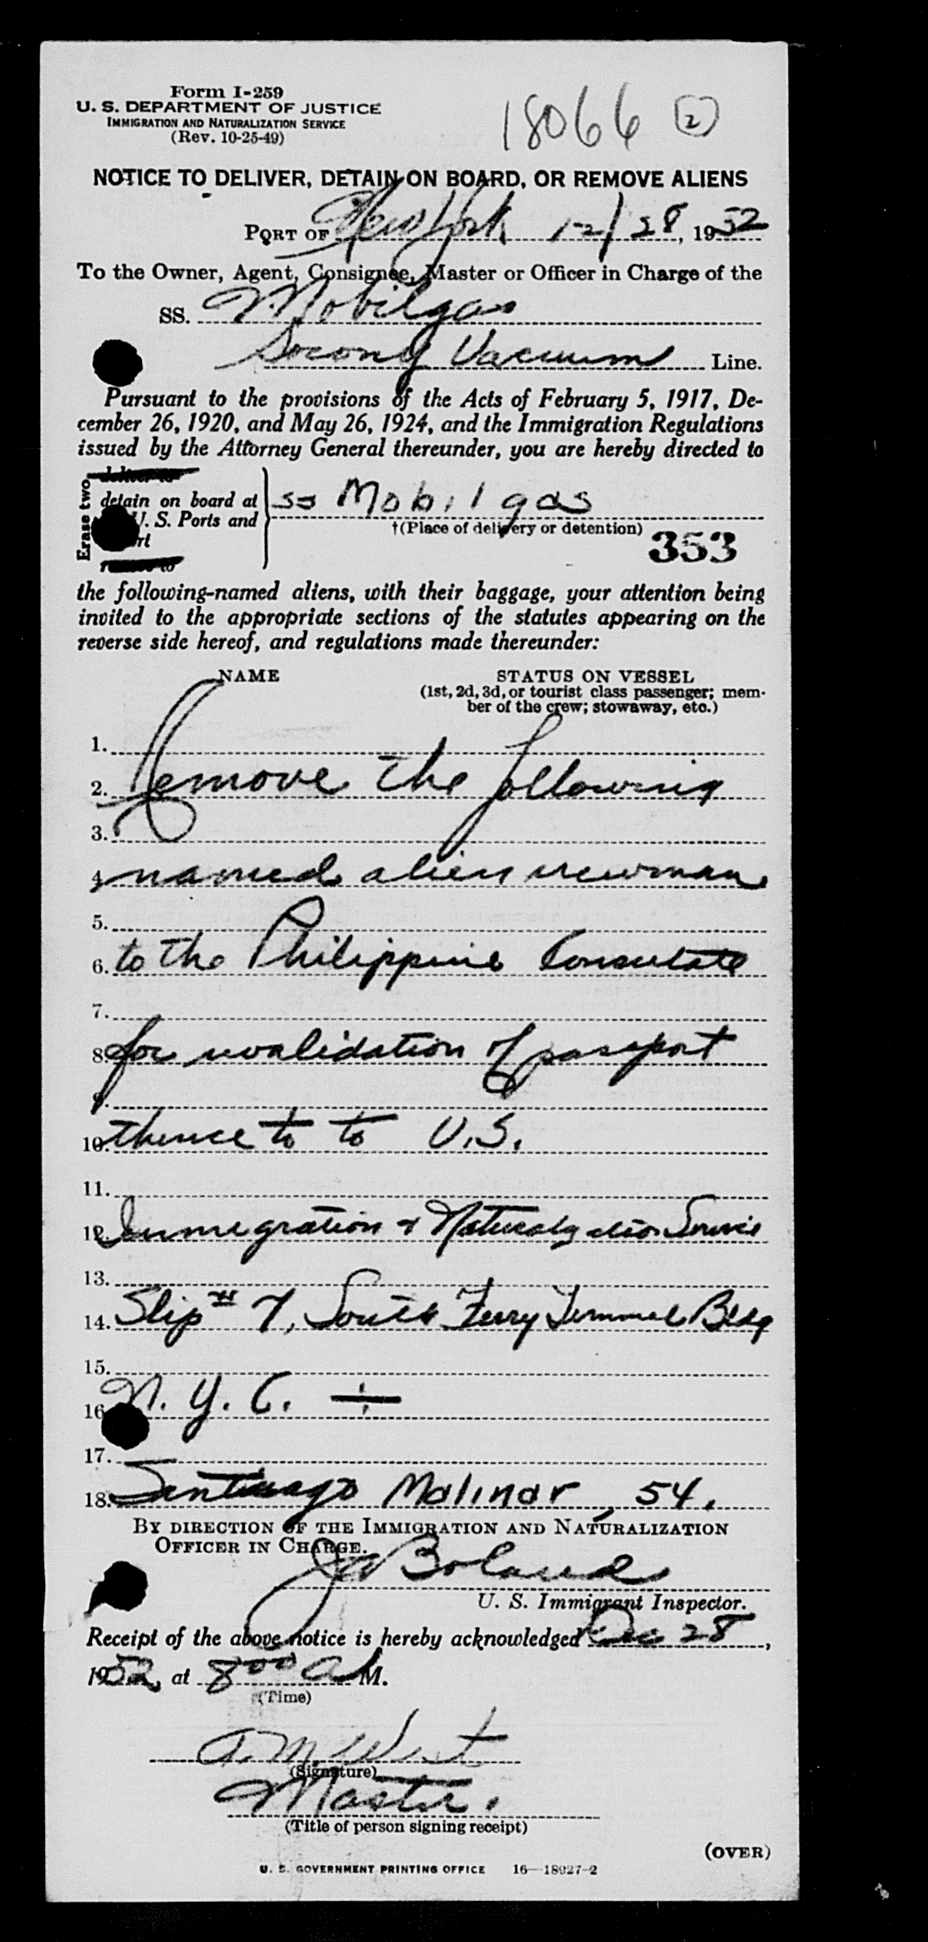 Form I-259
U. S. DEPARTMENT OF JUSTICE
IMMIGRATION AND NATURALIZATION SERVICE
(Rev. 10-25-49)
18066 (2)
NOTICE TO DELIVER, DETAIN ON BOARD, OR REMOVE ALIENS
PORT OF New York 12/28, 1952
To the Owner, Agent, Consignee, Master or Officer in Charge of the
SS. Mobilgas
Socony Vacuum Line.
Pursuant to the provisions of the Acts of February 5, 1917, De-
cember 26, 1920, and May 26, 1924, and the Immigration Regulations
issued by the Attorney General thereunder, you are hereby directed to
Erase two
detain on board at SS Mobilgas
U. S. Ports and
†(Place of delivery or detention)
353
the following-named aliens, with their baggage, your attention being
invited to the appropriate sections of the statutes appearing on the
reverse side hereof, and regulations made thereunder:
NAME STATUS ON VESSEL
(1st, 2d, 3d, or tourist class passenger; mem-
ber of the crew; stowaway, etc.)
1.
2. Remove the following
3.
4. named alien crewman
5.
6. to the Philippine Consulate
7.
8. for revalidation of passport
9.
10. thence to to U.S.
11.
12. Immigration & Naturalization Service
13.
14. Slip # 7, South Ferry Terminal Bldg
15.
16. N. Y. C. ÷
17.
18. Santiago Molinar, 54.
BY DIRECTION OF THE IMMIGRATION AND NATURALIZATION
OFFICER IN CHARGE.
Boland
U. S. Immigrant Inspector.
Receipt of the above notice is hereby acknowledged Dec 28,
1952, at 8:00 A M.
(Time)
West
(Signature)
Master.
(Title of person signing receipt)
(OVER)
U. S. GOVERNMENT PRINTING OFFICE 16—18027-2